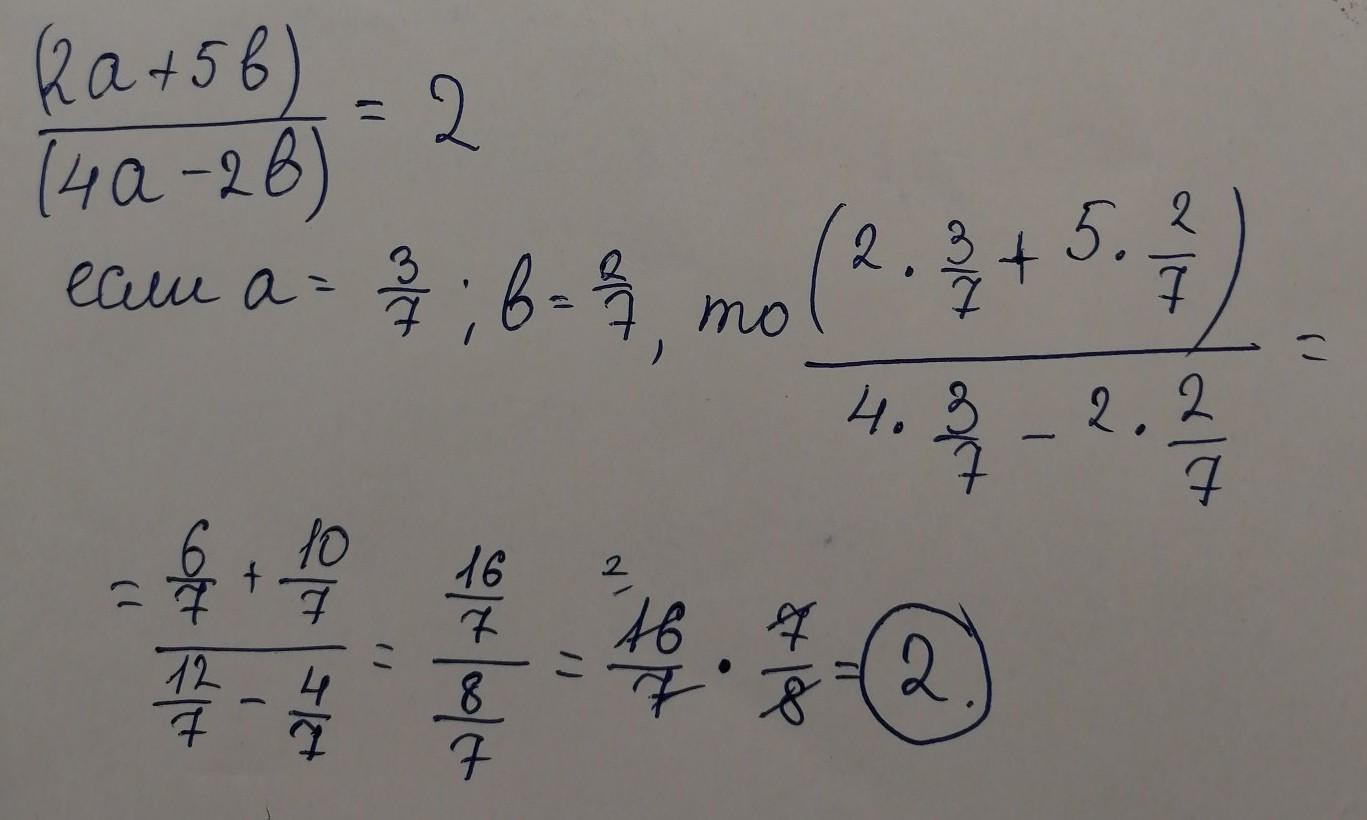 (2a+5b)/(4a-2b) = 2
если a = 3/7; b = 2/7, то (2·3/7 + 5·2/7)/(4·3/7 - 2·2/7) =
= (6/7 + 10/7)/(12/7 - 4/7) = (16/7)/(8/7) = 2 16/7 · 7/8 = 2.